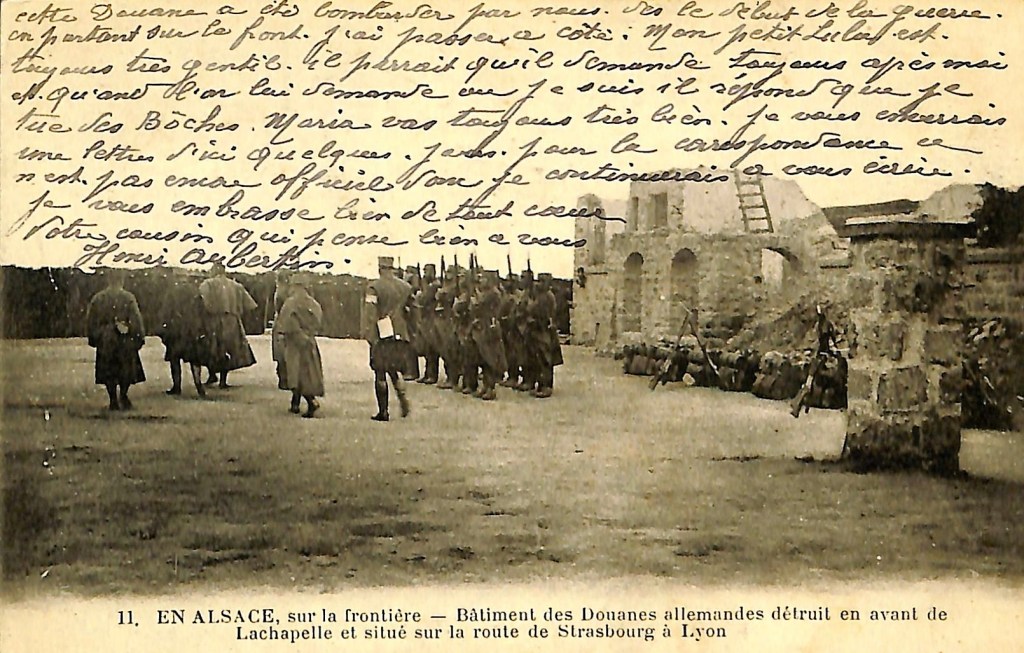 cette Douane a été bombarder par nous. dès le début de la guerre.
en partant sur le front. j'ai passer a côté. Mon petit Lulu est.
toujours très gentil. il parrait qu'il demande toujours après moi
et. quand l'on lui demande ou je suis il répond que je
tue des Bôches. Maria vas toujours très bien. je vous enverrais
une lettres d'ici quelques. jours. pour la carespondance ce
n'est. pas encore officiel dom je continuerais a vous écrire.
je vous embrasse bien de tout coeur
Votre cousin qui pense bien a vous
Henri Aubertin.
11. EN ALSACE, sur la frontière — Bâtiment des Douanes allemandes détruit en avant de
Lachapelle et situé sur la route de Strasbourg à Lyon